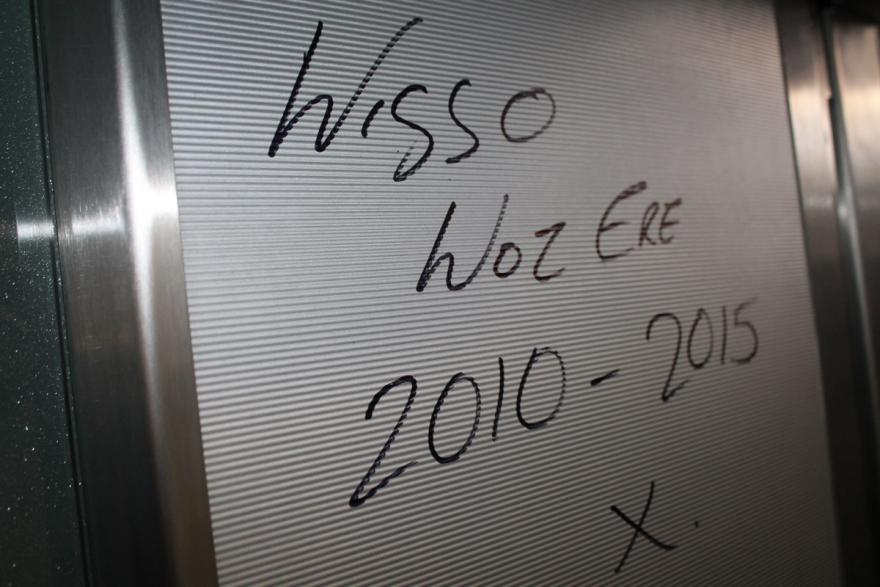 Wisso
Woz ERE
2010 - 2015
X.